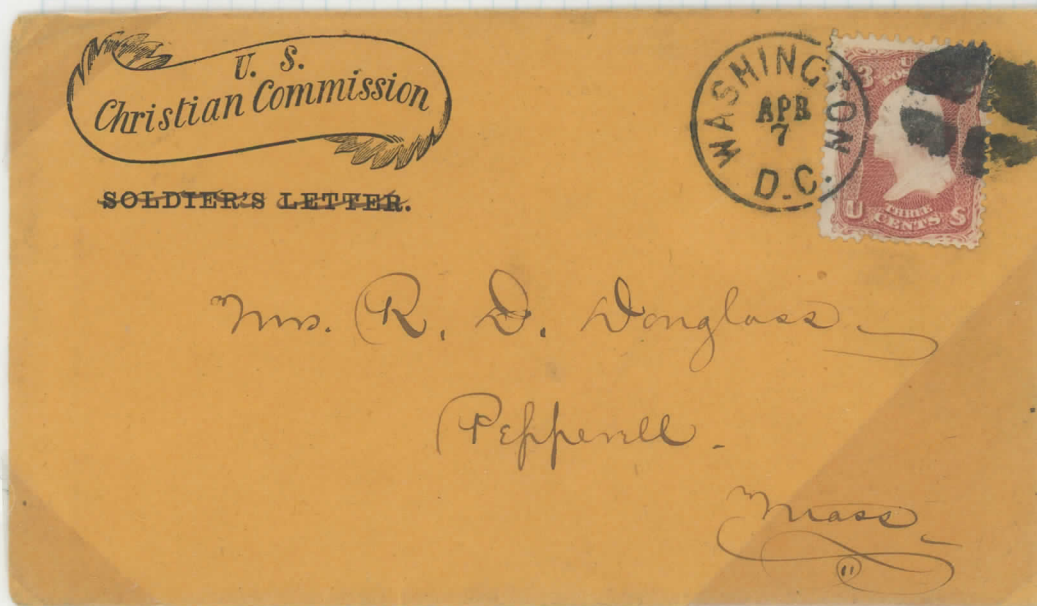 U. S.
Christian Commission
SOLDIER'S LETTER.
WASHINGTON
APR
7
D.C.
3
U
THREE
CENTS
S
Mrs. R. D. Douglass
Pepperell.
Mass.